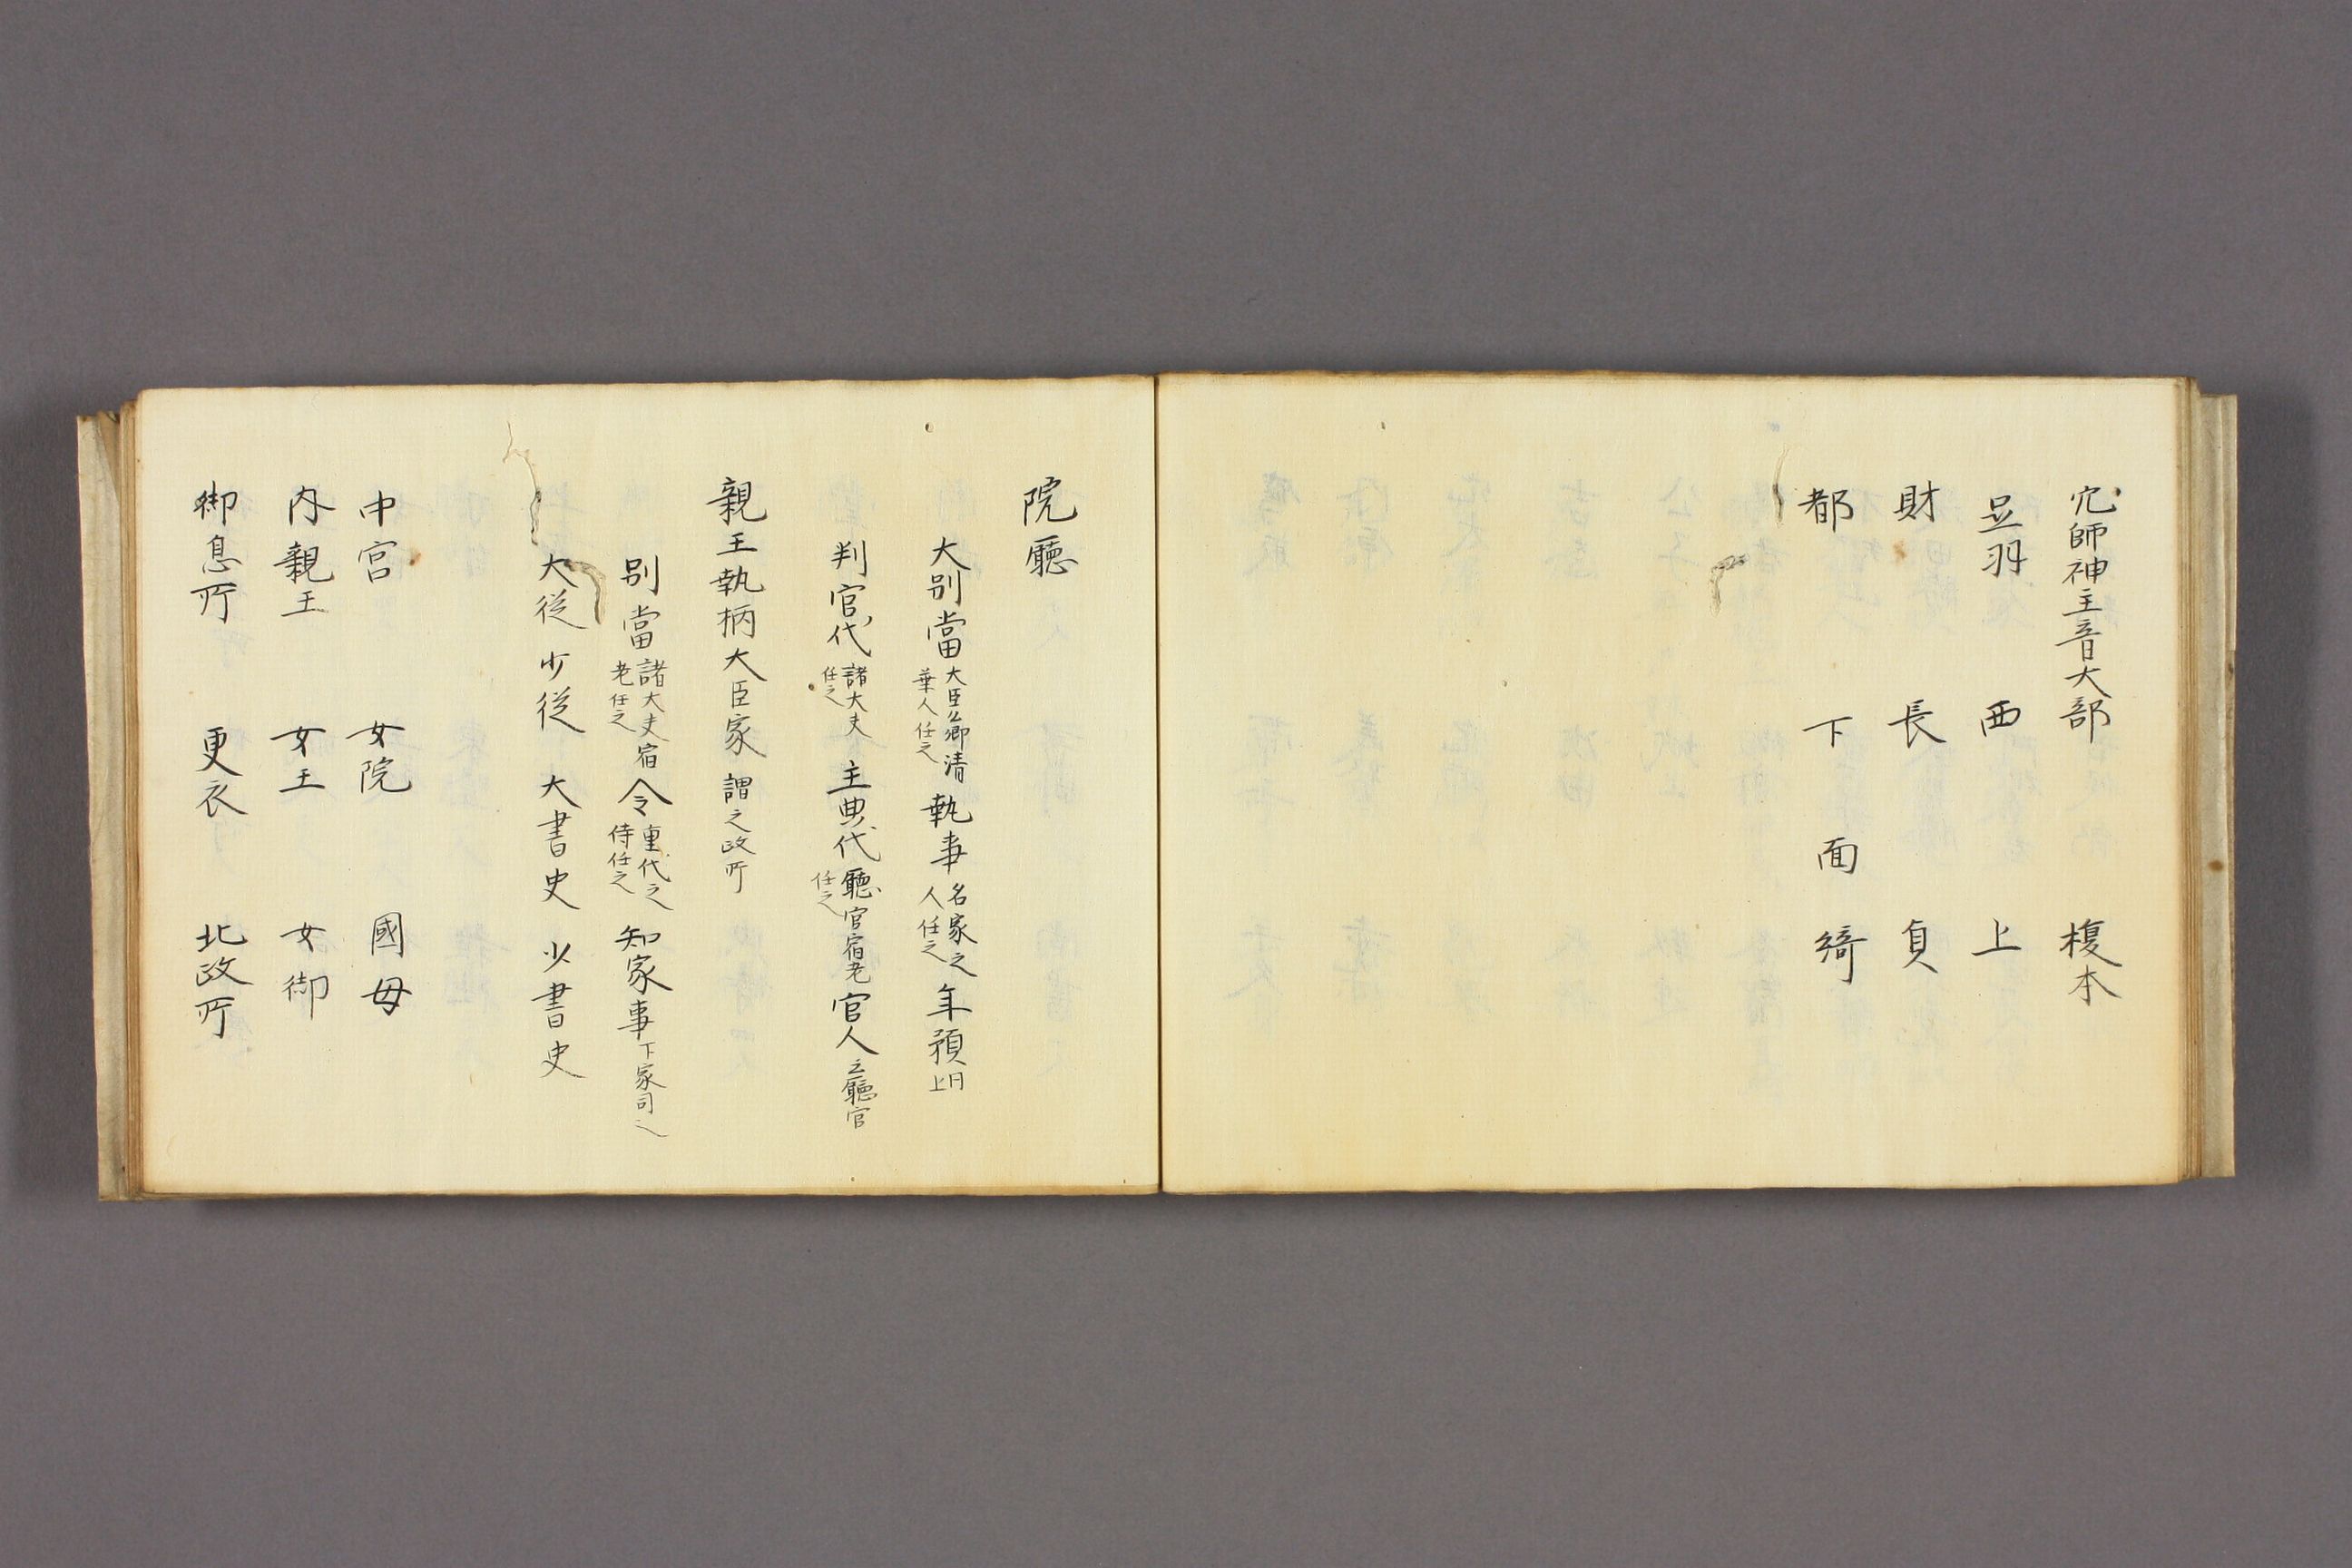 穴師神主音大部 榎本
足羽 西 上
財 長 貞
都 下 面 綺
院廳
大別當 大臣公卿清華人任之 執事 名家之人任之 年預 同上
判官代 諸大夫任之 主典代 廳官宿老任之 官人 云廳官
親王執柄大臣家 謂之政所
別當 諸大夫宿老任之 令 重代之侍任之 知家事 下家司之
大従 少従 大書史 少書史
中宮 女院 國母
内親王 女王 女御
御息所 更衣 北政所